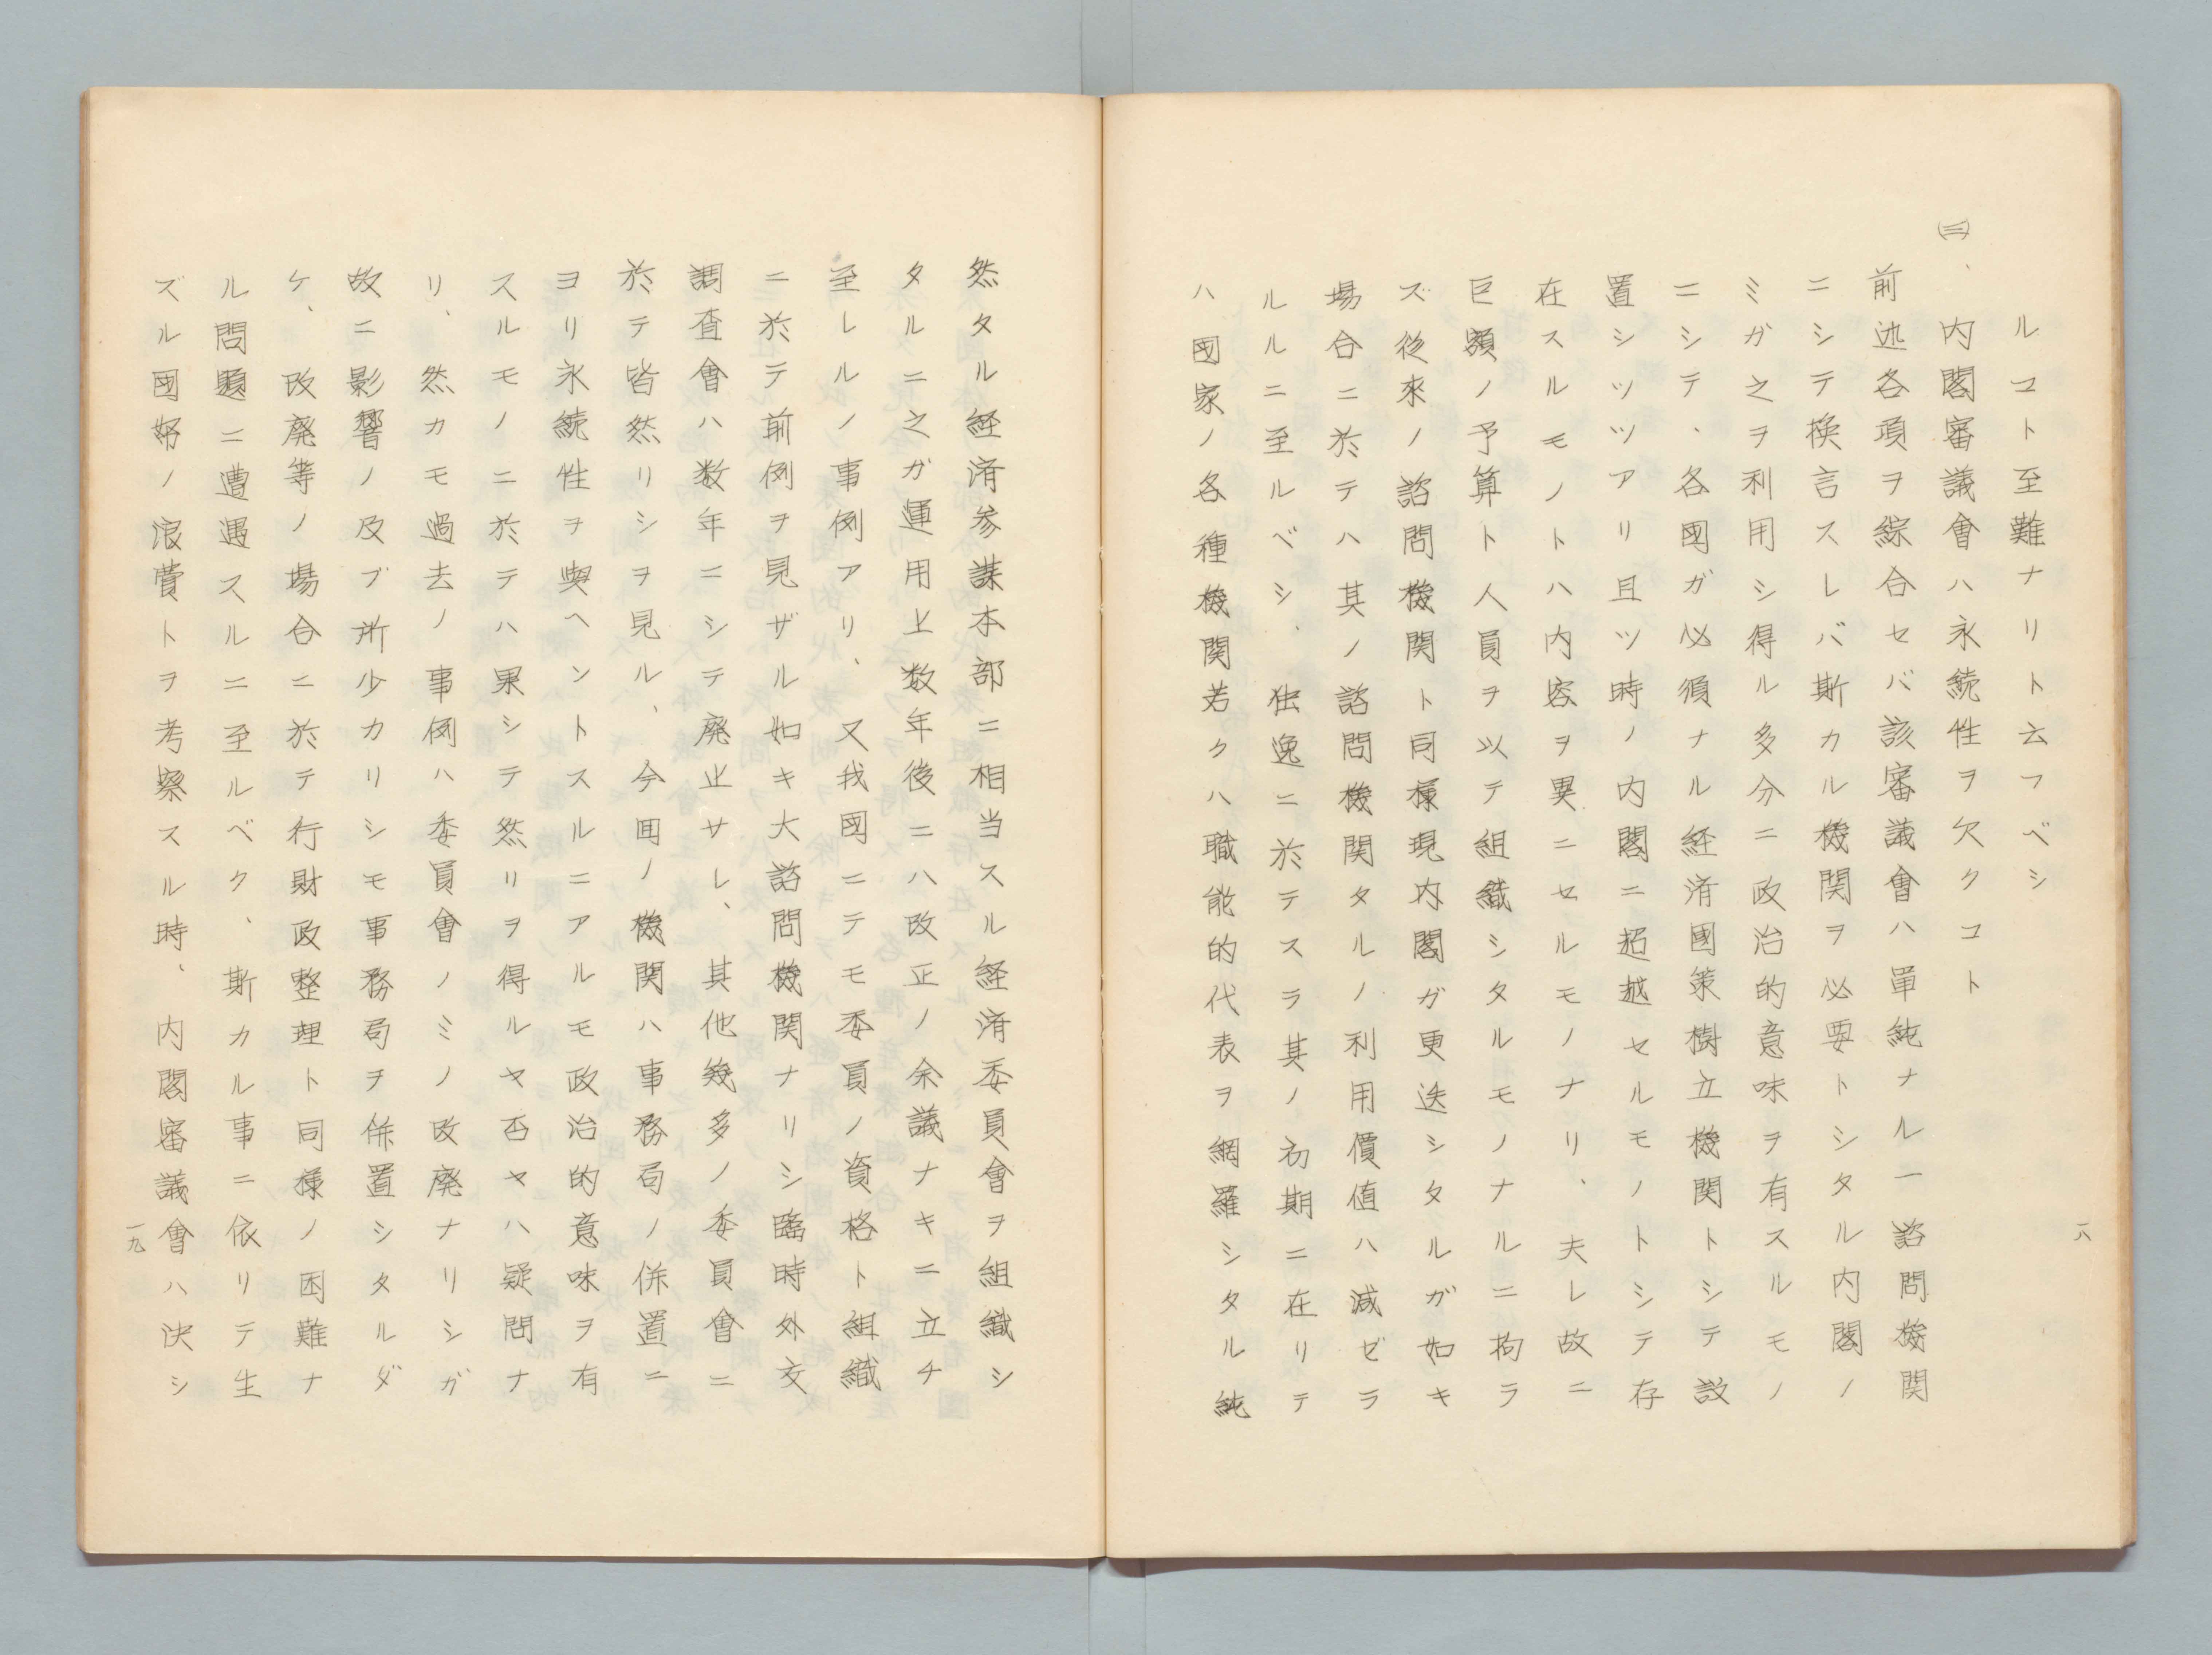 ルコト至難ナリト云フベシ
㈢、内閣審議會ハ永続性ヲ欠クコト
前述各項ヲ綜合セバ該審議會ハ單純ナル一諮問機関
ニシテ換言スレバ斯カル機関ヲ必要トシタル内閣ノ
ミガ之ヲ利用シ得ル多分ニ政治的意味ヲ有スルモノ
ニシテ、各國ガ必須ナル経済國策樹立機関トシテ設
置シツツアリ且ツ時ノ内閣ニ超越セルモノトシテ存
在スルモノトハ内容ヲ異ニセルモノナリ、夫レ故ニ
巨額ノ予算ト人員ヲ以テ組織シタルモノナルニ拘ラ
ズ從來ノ諮問機関ト同様現内閣ガ更迭シタルガ如キ
場合ニ於テハ其ノ諮問機関タルノ利用價値ハ減ゼラ
ルルニ至ルベシ、独逸ニ於テスラ其ノ初期ニ在リテ
ハ國家ノ各種機関若クハ職能的代表ヲ網羅シタル純
一八
然タル経済参謀本部ニ相当スル経済委員會ヲ組織シ
タルニ之ガ運用上数年後ニハ改正ノ余議ナキニ立チ
至レルノ事例アリ、又我國ニテモ委員ノ資格ト組織
ニ於テ前例ヲ見ザル如キ大諮問機関ナリシ臨時外交
調査會ハ数年ニシテ廃止サレ、其他幾多ノ委員會ニ
於テ皆然リシヲ見ル、今囬ノ機関ハ事務局ノ併置ニ
ヨリ永続性ヲ與ヘントスルニアルモ政治的意味ヲ有
スルモノニ於テハ果シテ然リヲ得ルヤ否ヤハ疑問ナ
リ、然カモ過去ノ事例ハ委員會ノミノ改廃ナリシガ
故ニ影響ノ及ブ所少カリシモ事務局ヲ併置シタルダ
ケ、改廃等ノ場合ニ於テ行財政整理ト同様ノ困難ナ
ル問題ニ遭遇スルニ至ルベク、斯カル事ニ依リテ生
ズル國帑ノ浪費トヲ考察スル時、内閣審議會ハ決シ
一九